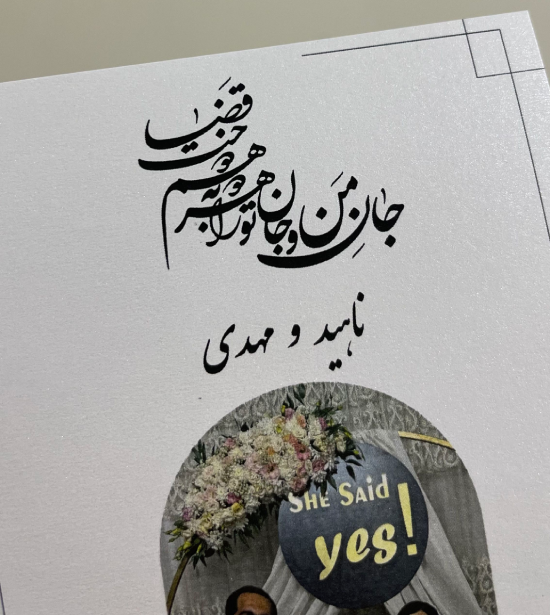 جانِ من و جان تو را هر دو به هم دوخت قضا
ناهید و مهدی
SHE SAID
yes!